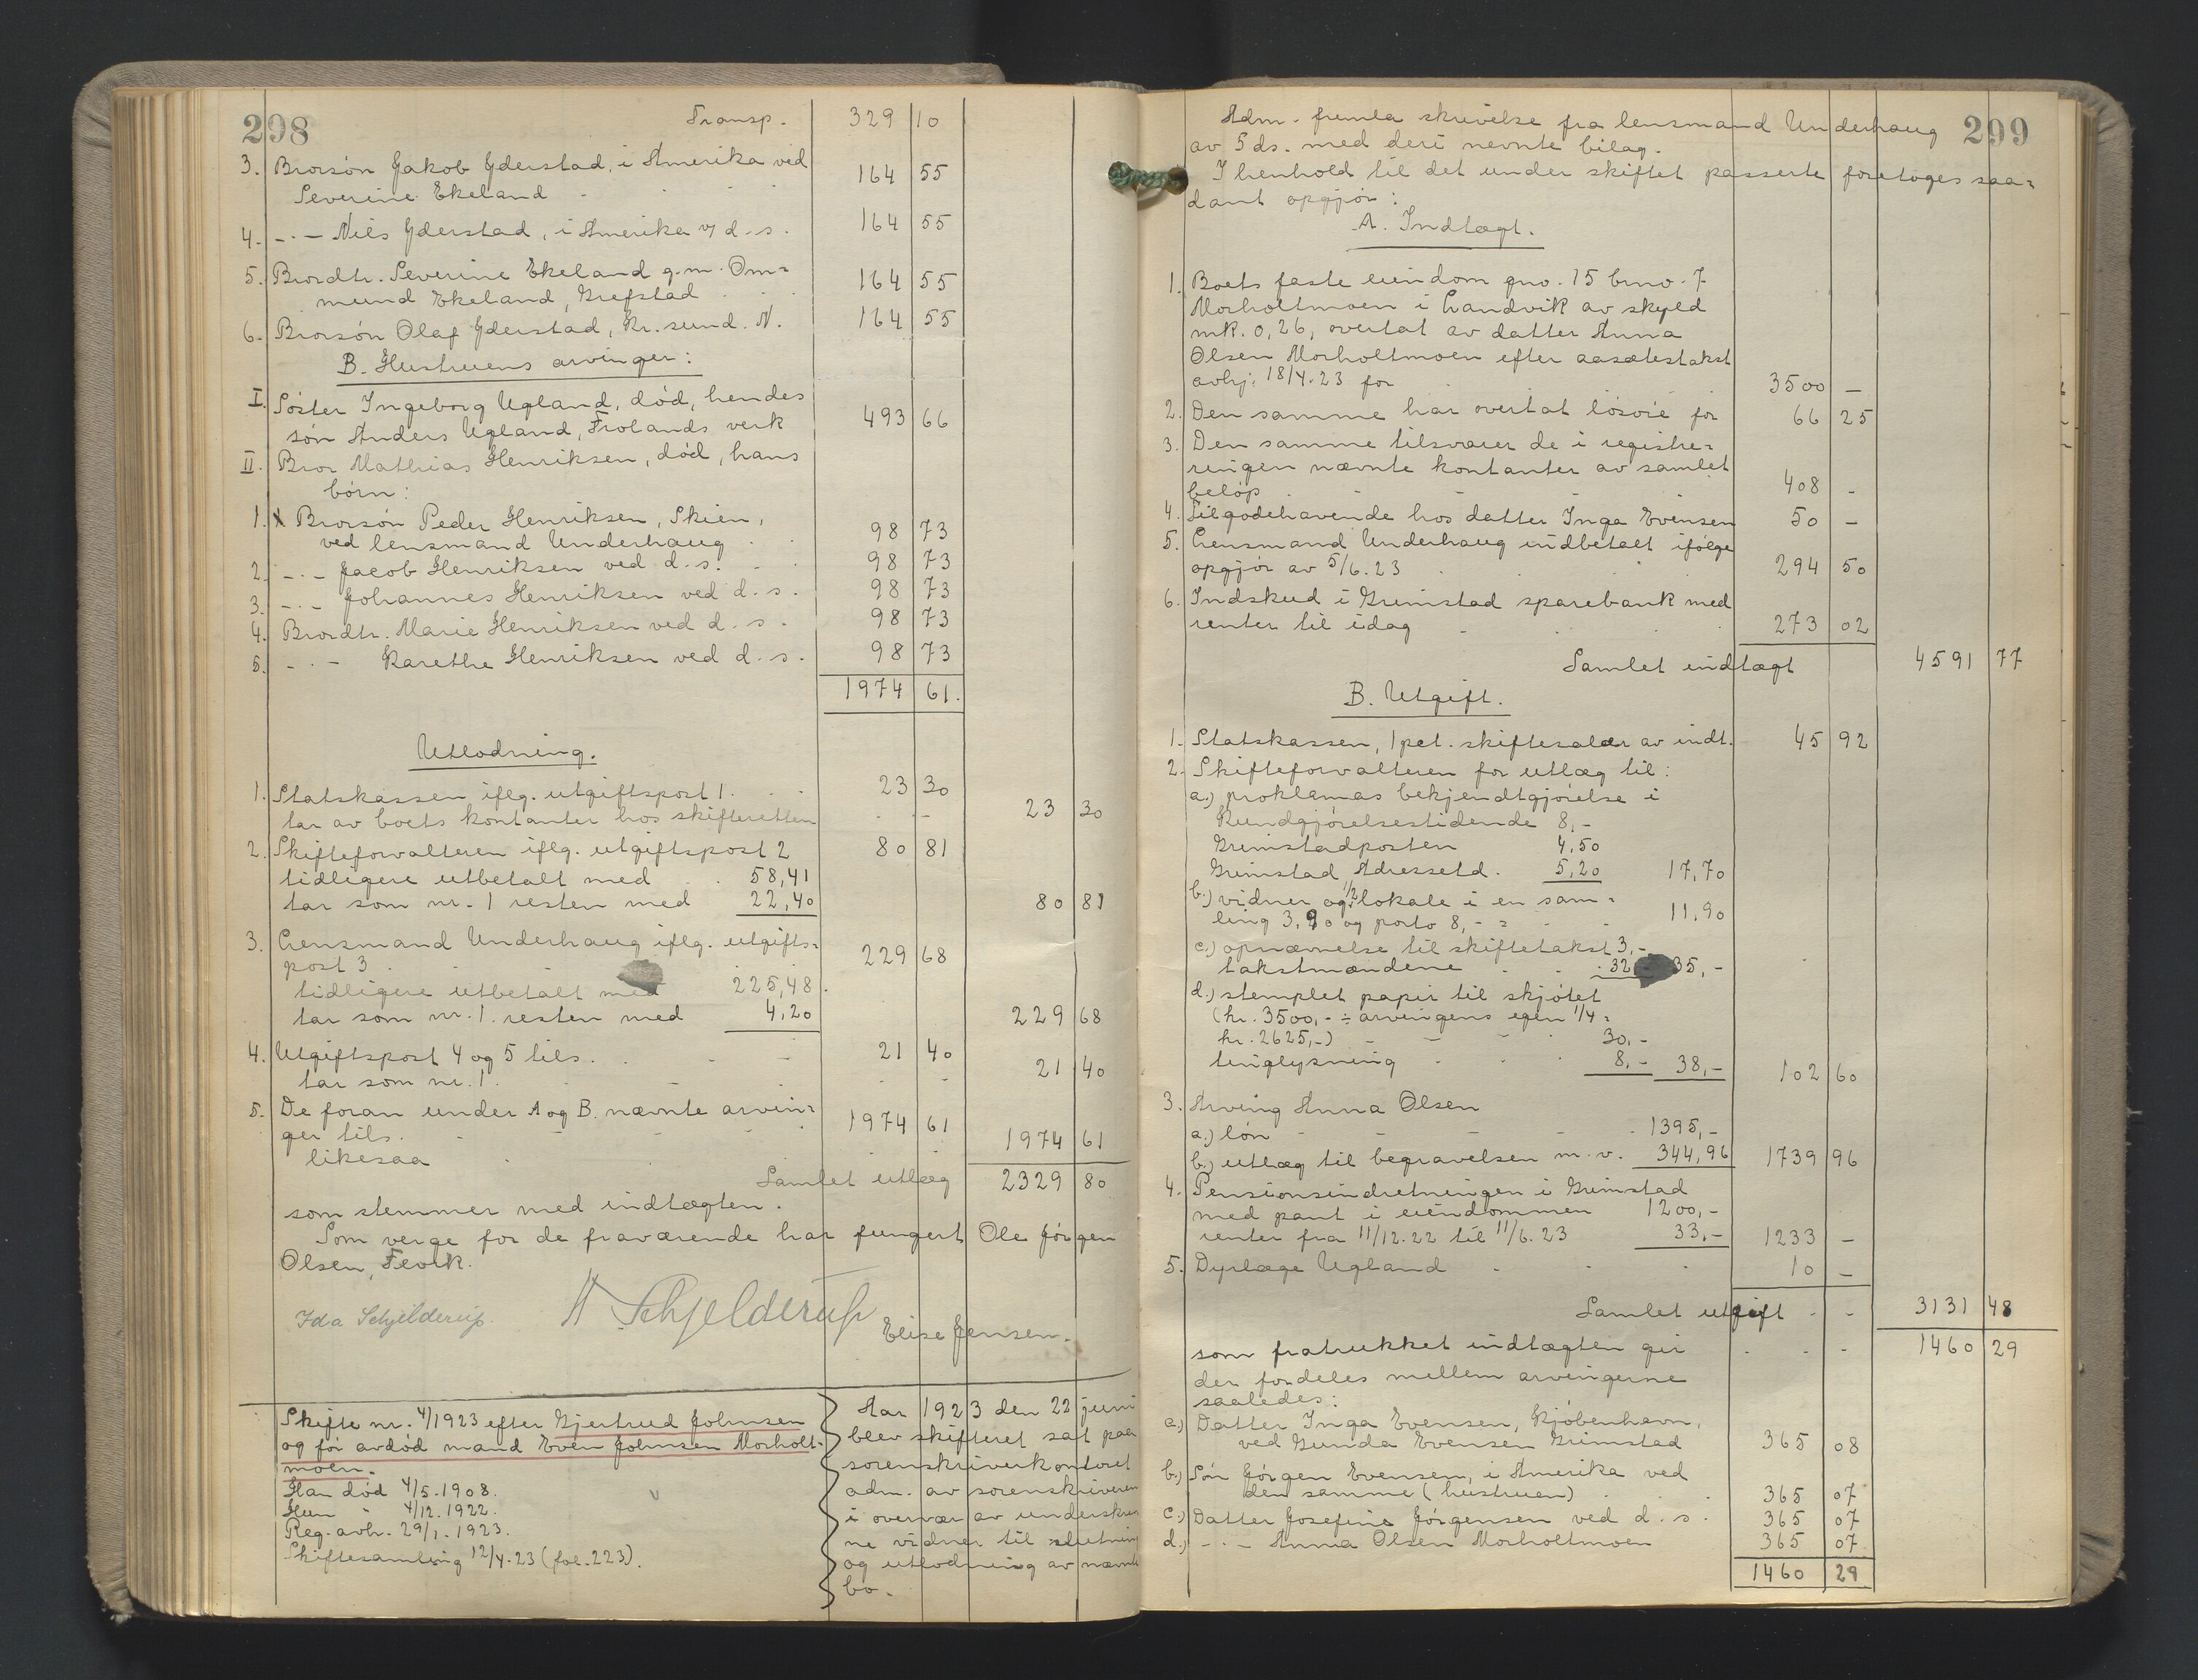 298
Transp. 329 10
3. Brorsön Jakob Yderstad, i Amerika ved 164 55
Severine Ekeland
4. -·- Niels Yderstad, i Amerika v/ d.s. 164 55
5. Brordtr. Severine Ekeland g.m. Om=
mund Ekeland, Grefstad 164 55
6. Brorsön Olaf Yderstad, Kr.sund. N. 164 55
B. Hustruens arvinger:
I. Söster Ingeborg Ugland, död, hendes
sön Anders Ugland, Frolands verk 493 66
II. Bror Mathias Henriksen, död, hans
börn:
1. x Brorsön Peder Henriksen, Skien,
ved lensmand Underhaug 98 73
2. -·- Jacob Henriksen ved d.s. 98 73
3. -·- Johannes Henriksen ved d.s. 98 73
4. Brordtr. Marie Henriksen ved d.s. 98 73
5. -·- Karethe Henriksen ved d.s. 98 73
1974 61.
Utlodning.
1. Statskassen iflg. utgiftspost 1. 23 30
tar av boets kontanter hos skifteretten 23 30
2. Skifteforvalteren iflg. utgiftspost 2 80 81
tidligere utbetalt med 58,41
tar som nr. 1 resten med 22,40 80 81
3. Lensmand Underhaug iflg. utgifts=
post 3 229 68
tidligere utbetalt med 225,48.
tar som nr. 1. resten med 4,20 229 68
4. Utgiftspost 4 og 5 tils. 21 40
tar som nr. 1. 21 40
5. De foran under A og B. nævnte arvin=
ger tils. 1974 61 1974 61
likesaa
Samlet utlæg 2329 80
som stemmer med indtægten.
Som verge for de fraværende har fungert Ole Jörgen
Olsen, Fevik.
Ida Schjelderup. H Schjelderup
Elise Jensen.
Skifte nr. 4/1923 efter Gjertrud Johnsen
og för avdöd mand Even Johnsen Morholt-
moen.
Han död 4/5.1908.
Hun " 4/12.1922.
Reg. avh. 29/1.1923.
Skiftesamling 12/4-23 (fol. 223).
Aar 1923 den 22 juni
blev skifteret sat paa
sorenskriverkontoret
adm. av sorenskriveren
i overvær av underskrev
ne vidner til slutning
og utlodning av nævnte
bo.
299
Adm. fremla skrivelse fra lensmand Underhaug
av 5 ds. med deri nevnte bilag.
I henhold til det under skiftet passerte foretoges saa=
dant opgjör:
A. Indtægt.
1. Boets faste eiendom gno. 15 bruno. 7
Morholtmoen i Landvik av skyld
mk. 0,26, overtat av datter Anna
Olsen Morholtmoen efter aasætestakst
avhj. 18/4.23 for 3500 —
2. Den samme har overtat lösöre for 66 25
3. Den samme tilsvarer de i registre=
ringen nævnte kontanter av samlet
belöp 408 -
4. Tilgodehavende hos datter Inga Evensen 50 -
5. Lensmand Underhaug indbetalt ifölge
opgjör av 5/6.23 294 50
6. Indskud i Grimstad sparebank med
renter til idag 273 02
Samlet indtægt 4591 77
B. Utgift.
1. Statskassen, 1 pct. skiftesalær av indt. 45 92
2. Skifteforvalteren for utlæg til:
a.) proklamas bekjendtgjörelse i
Kundgjörelsestidende 8,-
Grimstadposten 4,50
Grimstad Adressetd. 5,20 17,70
b.) vidner og 1/2 lokale i en sam=
ling 3,90 og porto 8,- = 11,90
c.) opnævnelse til skiftetakst 3,-
takstmændene 32 35,-
d.) stemplet papir til skjötet
(kr. 3500,- ÷ arvingens egen 1/4 =
kr. 2625,-) 30,-
tinglysning 8,- 38,- 102 60
3. Arving Anna Olsen
a.) lön 1395,-
b.) utlæg til begravelsen m.v. 344,96 1739 96
4. Pensionsindretningen i Grimstad
med pant i eiendommen 1200,-
renter fra 11/12.22 til 11/6.23 33,- 1233 —
5. Dyrlæge Ugland 10 —
Samlet utgift 3131 48
som fratrukket indtægten gir 1460 29
der fordeles mellem arvingerne
saaledes:
a.) Datter Inga Evensen, Kjöbenhavn,
ved Gunda Evensen Grimstad 365 08
b.) Sön Jörgen Evensen, i Amerika ved
den samme (hustruen) 365 07
c.) Datter Josefine Jörgensen ved d.s. 365 07
d.) -·- Anna Olsen Morholtmoen 365 07
1460 29